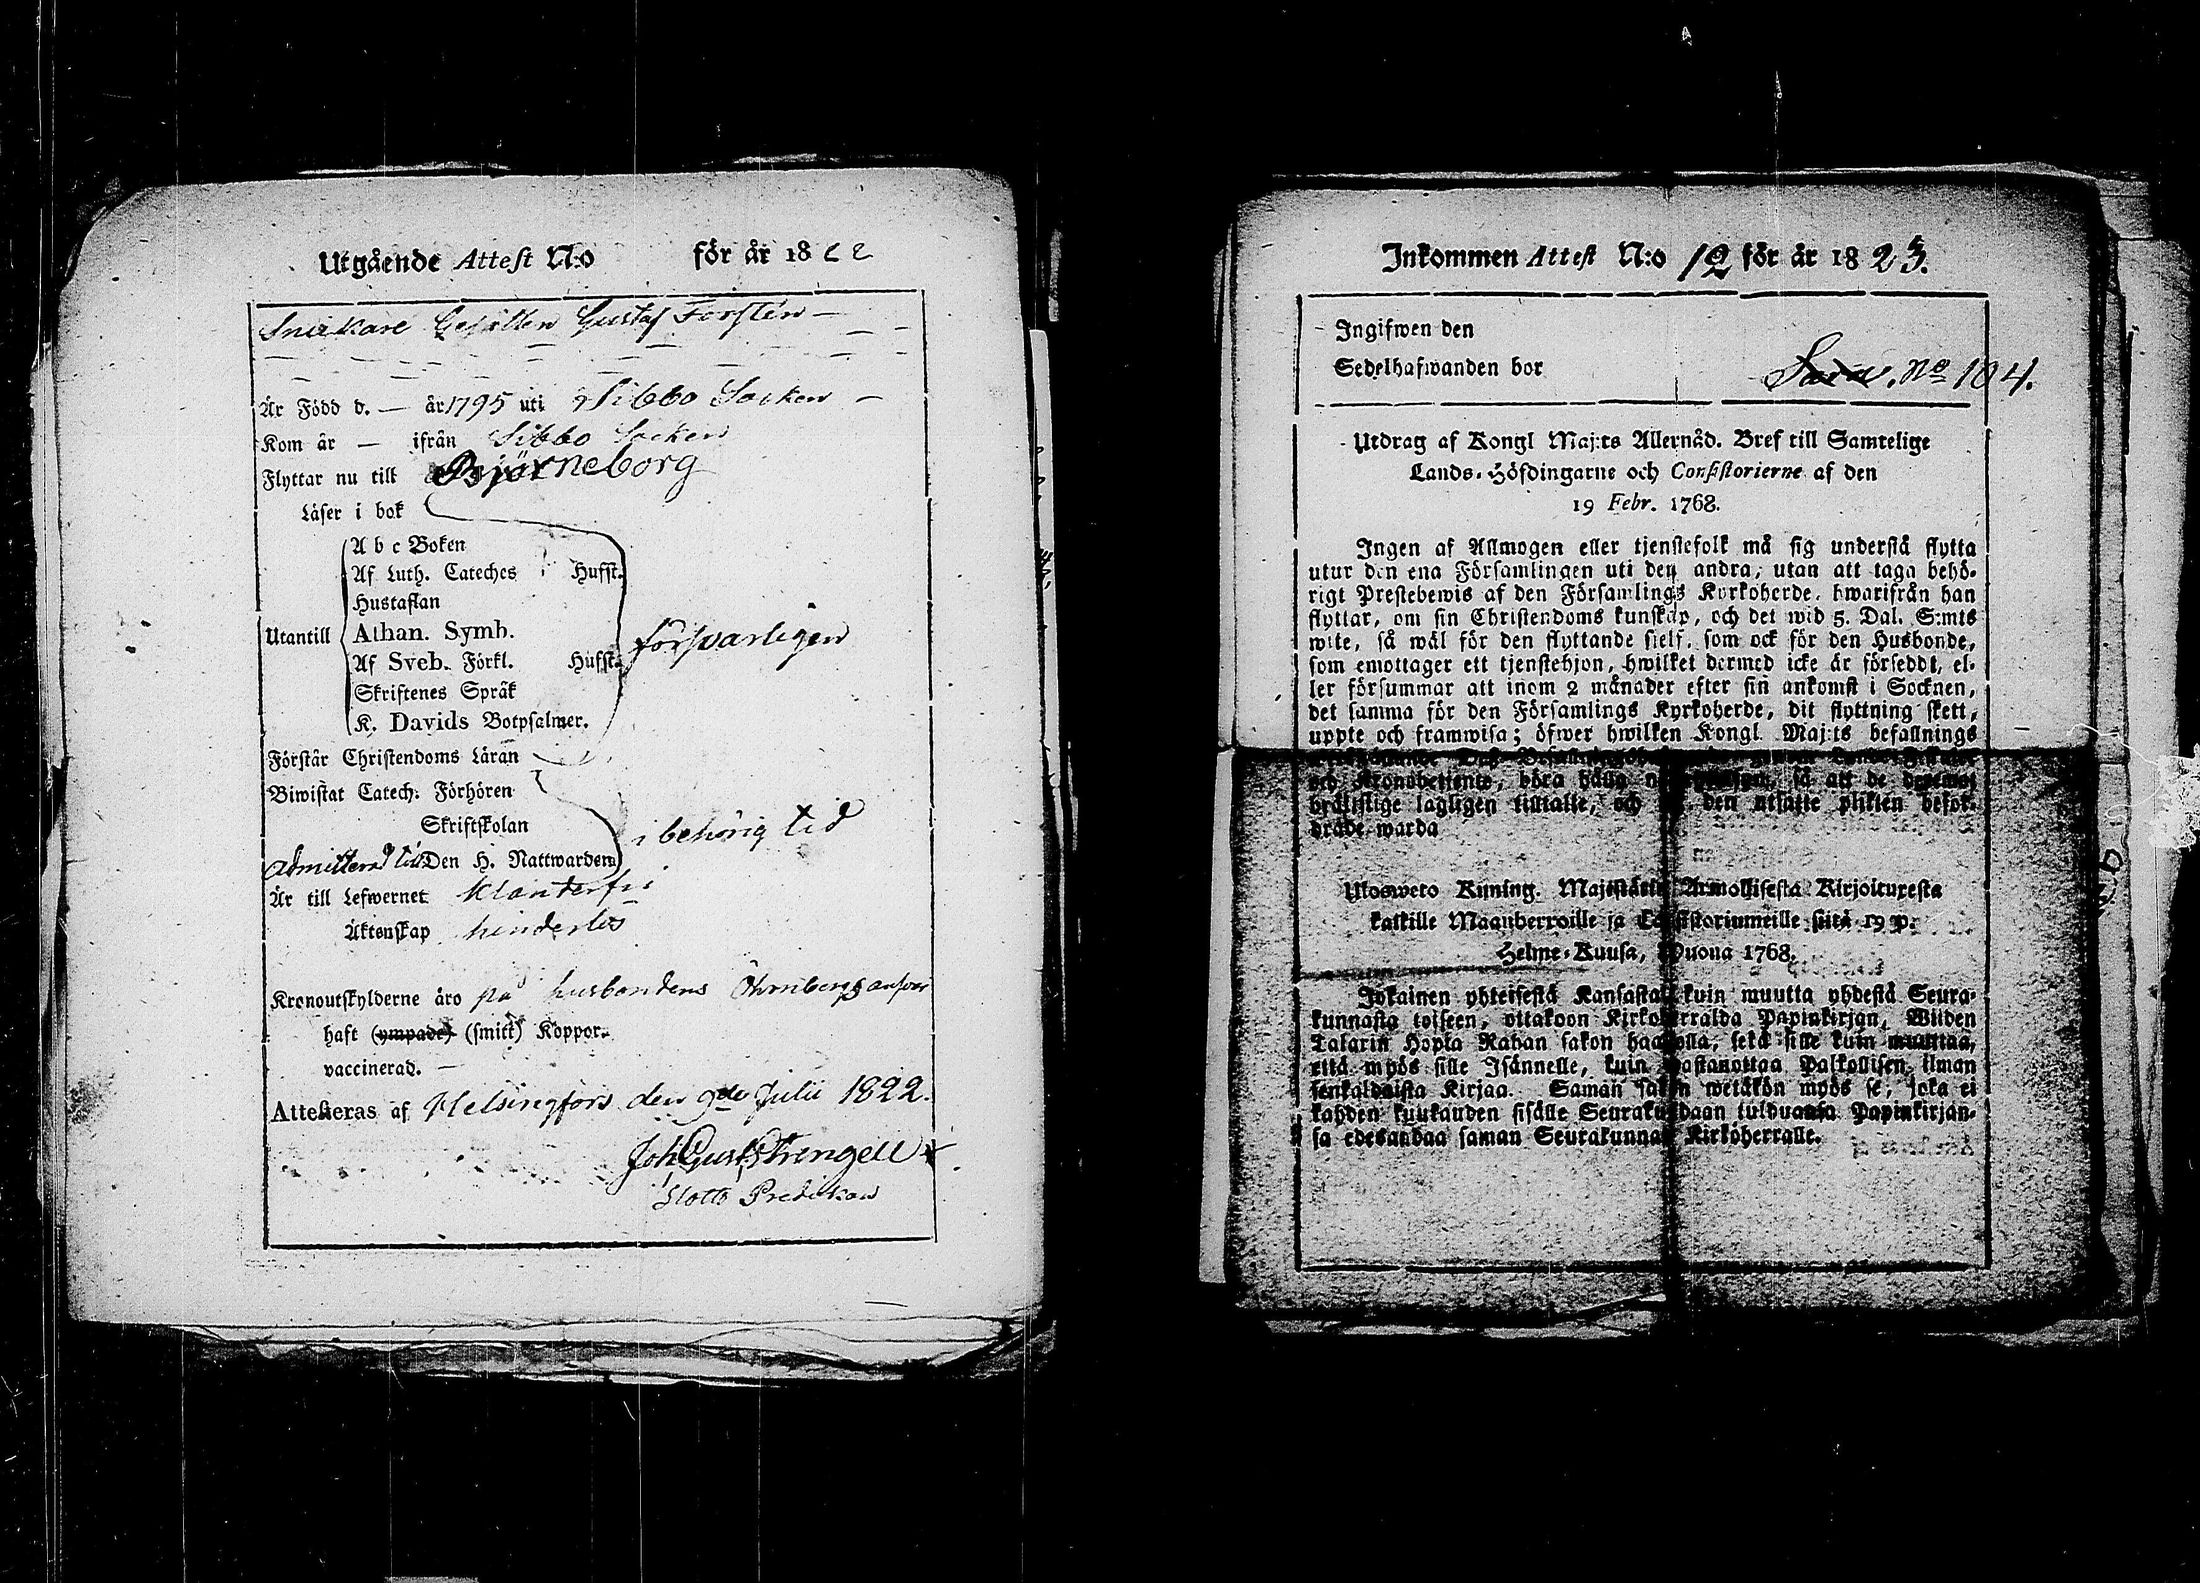 Utgående Attest N:o för år 1822
Snickare Gesällen Gustaf Forstén
Är Född d. — år 1795 uti Sibbo Socken —
Kom år — ifrån Sibbo Socken
Flyttar nu till Björneborg
Läser i bok
A b c Boken
Af Luth. Cateches Hufst.
Hustaflan
Utantill Athan. Symb.
Af Sveb. Förkl. Hufst.
försvarligen
Skriftenes Språk
K. Davids Botpsalmer.
Förstår Christendoms Läran
Biwistat Catech. Förhören
Skriftskolan
i behörig tid
admitterad till Den H. Nattwarden
Är till Lefwernet klanderfri
Äktenskap hinderlös
Kronoutskylderne äro på husbondens Öhrnbergs answar
haft (ympade) (smitt) Koppor.
vaccinerad. —
Attesteras af Helsingfors den 9de Julii 1822.
Joh Gust Strengell
Slotts Predikan
Inkommen Attest N:o 12 för år 1823.
Ingifwen den
Sedelhafwanden bor
No 104.
Utdrag af Kongl Maj:ts Allernåd. Bref till Samtelige
Lands-Höfdingarne och Consistorierne af den
19 Febr. 1768.
Ingen af Allmogen eller tjenstefolk må sig understå flytta
utur den ena Församlingen uti den andra, utan att taga behö-
rigt Prestebewis af den Församlings Kyrkoherde, hwarifrån han
flyttar, om sin Christendoms kunskap, och det wid 5. Dal. S:mts
wite, så wäl för den flyttande sielf, som ock för den Husbonde,
som emottager ett tjenstehjon, hwilket dermed icke är försedt, el-
ler försummar att inom 2 månader efter sin ankomst i Socknen,
det samma för den Församlings Kyrkoherde, dit flyttning skett,
uppte och framwisa; öfwer hwilken Kongl. Maj:ts befallnings
och Kronobetjente, böra hålla så att de deremot
brottslige lagligen tilltalte, och den utsatte plikten befor-
drade warda
Ulosweto Kuning. Majestätin Armollisesta Kirjoituxesta
kaikille Maanherroille ja Consistoriumeille siitä 19 p.
Helme-Kuusa, Wuona 1768.
Jokainen yhteisestä Kansasta kuin muutta yhdestä Seura-
kunnasta toiseen, ottakoon Kirkoherralda Papinkirjan, Wiiden
Talarin Hopia Rahan sakon haastolla, sekä sille kuin muuttaa,
että myös sille Isännelle, kuin wastanottaa Palkollisen ilman
senkaldaista Kirjaa. Saman sakon wetäkön myös se, joka ei
kahden kuukauden sisälle Seurakundaan tulduansa Papinkirjan-
sa edesandaa saman Seurakunnan Kirkoherralle.